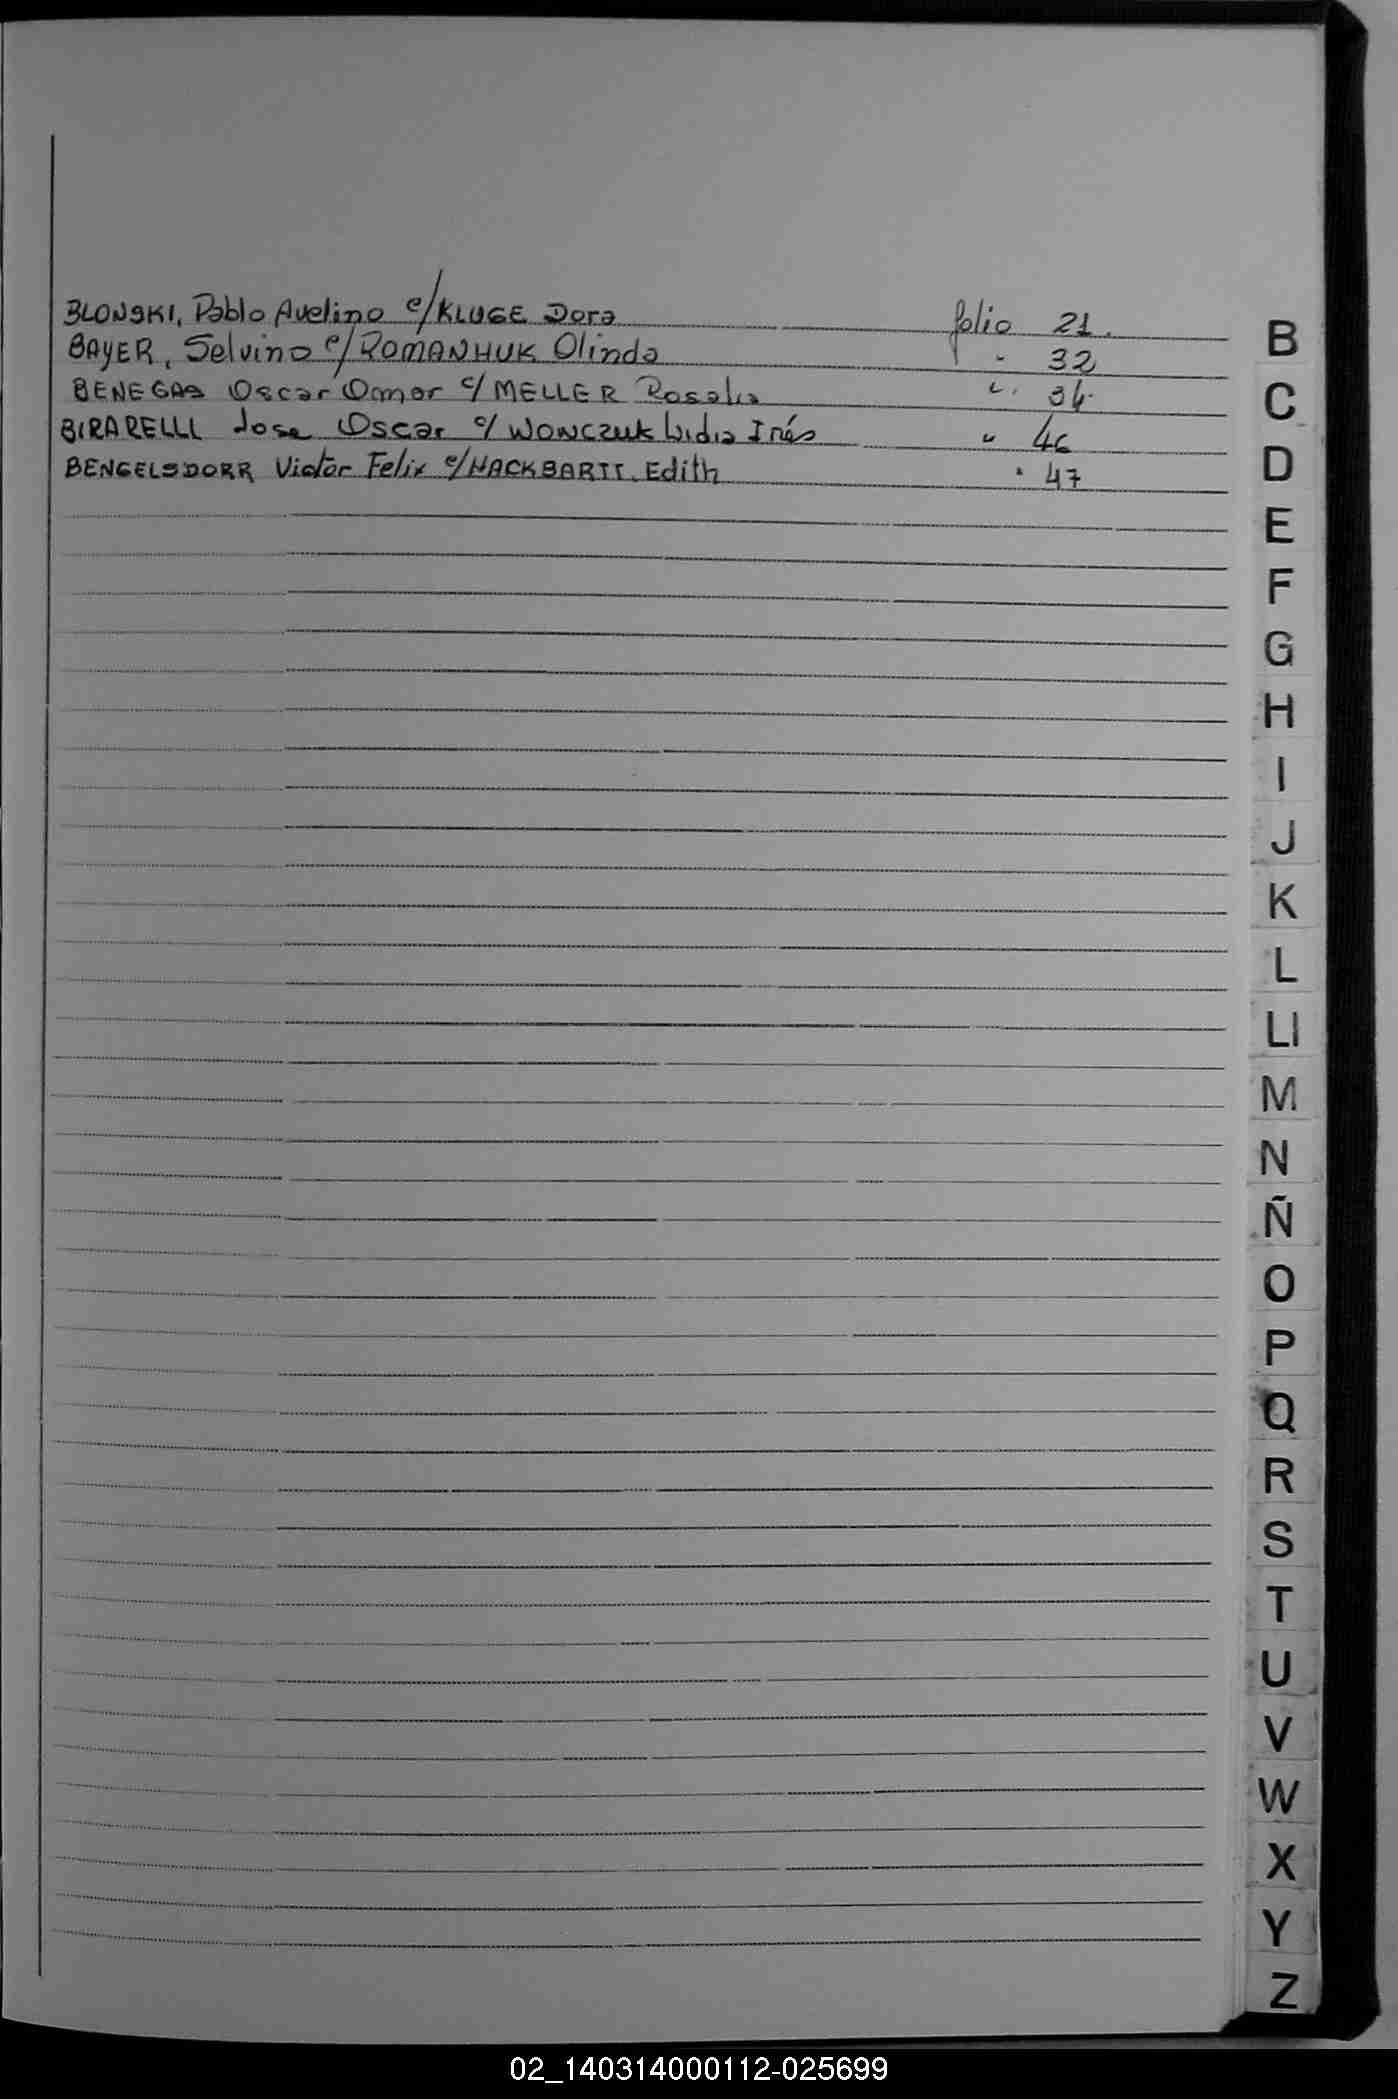 BLONSKI, Pablo Avelino c/KLUGE Dora folio 21.
BAYER, Selvino c/ROMANHUK Olinda " 32
BENEGAS Oscar Omar c/ MELLER Rosalia " 34.
BIRARELLI Jose Oscar c/ WONCZUK Lidia Inés " 46
BENGELSDORR Victor Felix c/HACKBARTT. Edith " 47
B
C
D
E
F
G
H
I
J
K
L
Ll
M
N
Ñ
O
P
Q
R
S
T
U
V
W
X
Y
Z
02_140314000112-025699